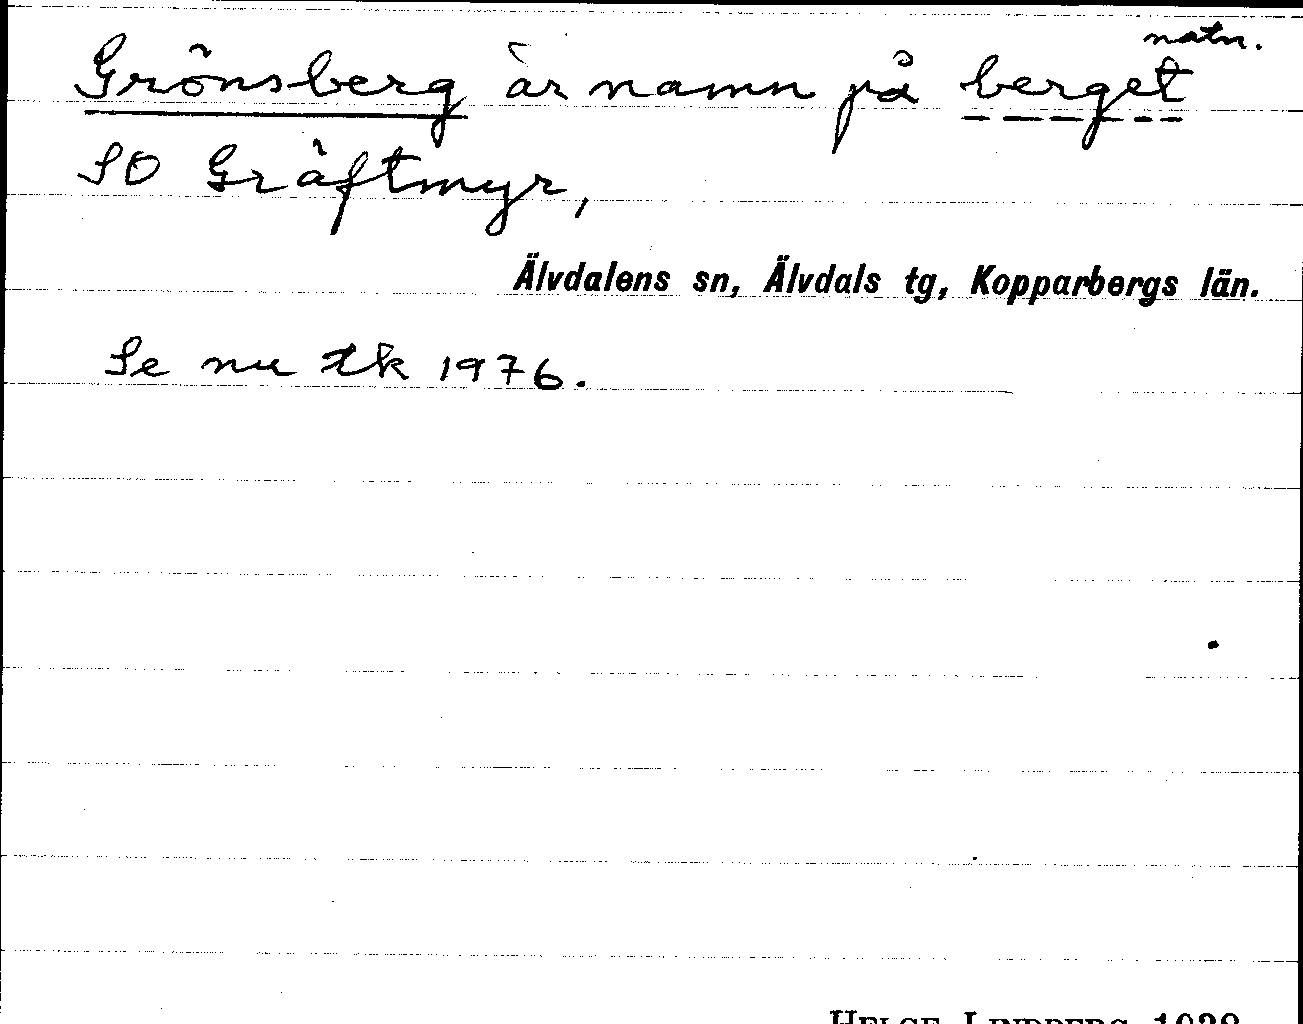 natn.
Grönsberg är namn på berget
SO Gräftmyr,
Älvdalens sn, Älvdals tg, Kopparbergs län.
Se nu tk 1976.
HELGE LINDBERG